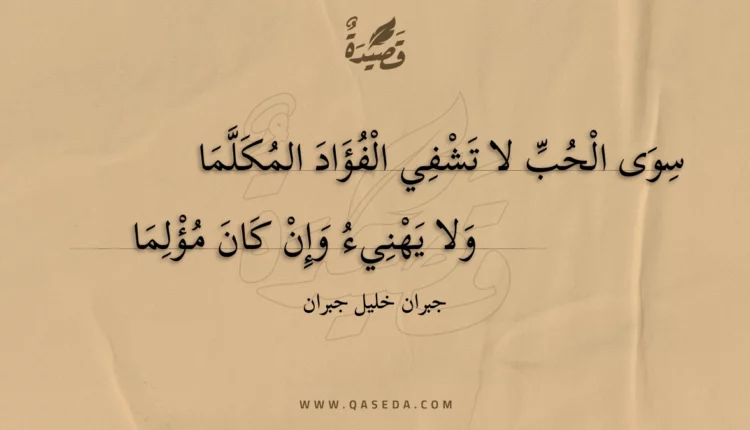 قَصِيْدَةٌ
سِوَى الْحُبِّ لا تَشْفِي الْفُؤَادَ المُكَلَّمَا
وَلا يَهْنِيءُ وَإِنْ كَانَ مُؤْلِمَا
جبران خليل جبران
WWW.QASEDA.COM